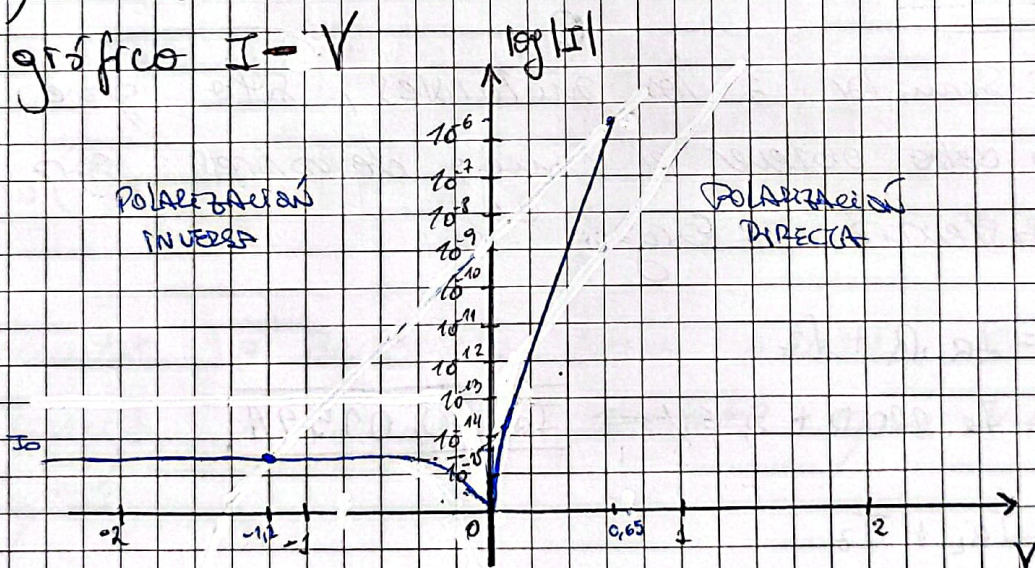 gráfico I - V
log|I|
10⁻⁶
10⁻⁷
10⁻⁸
10⁻⁹
10⁻¹⁰
10⁻¹¹
10⁻¹²
10⁻¹³
10⁻¹⁴
10⁻¹⁵
POLARIZACIÓN
INVERSA
POLARIZACIÓN
DIRECTA
I₀
-2
-1,2
-1
0
0,65
1
2
V